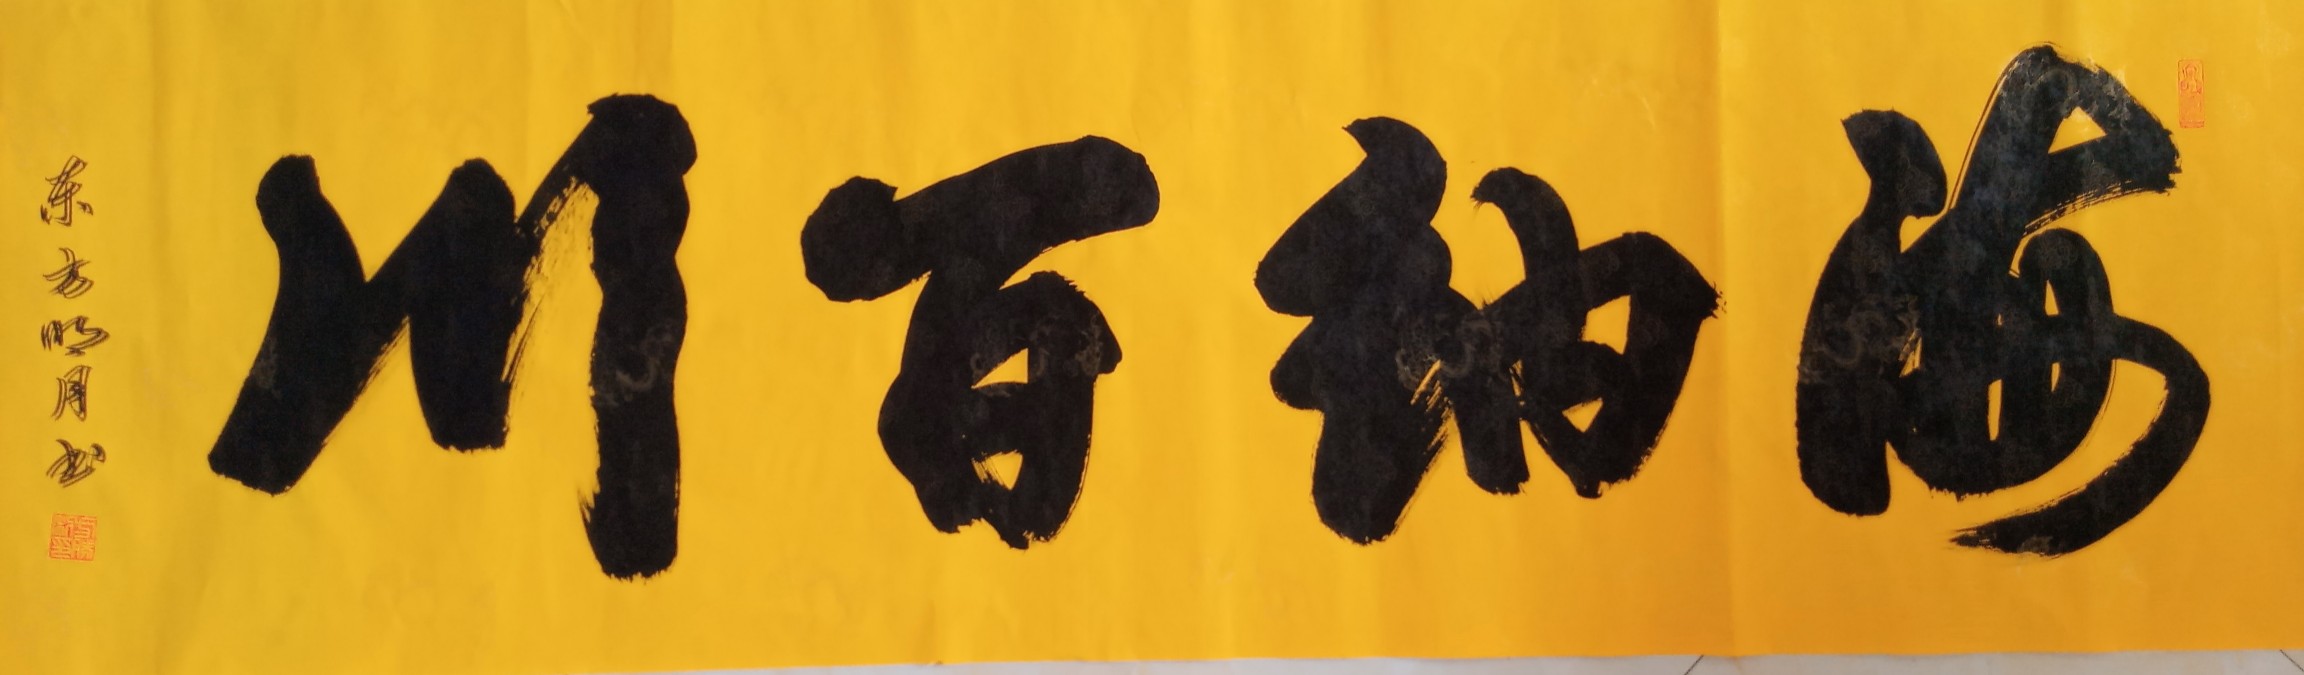 海纳百川
东方明月书